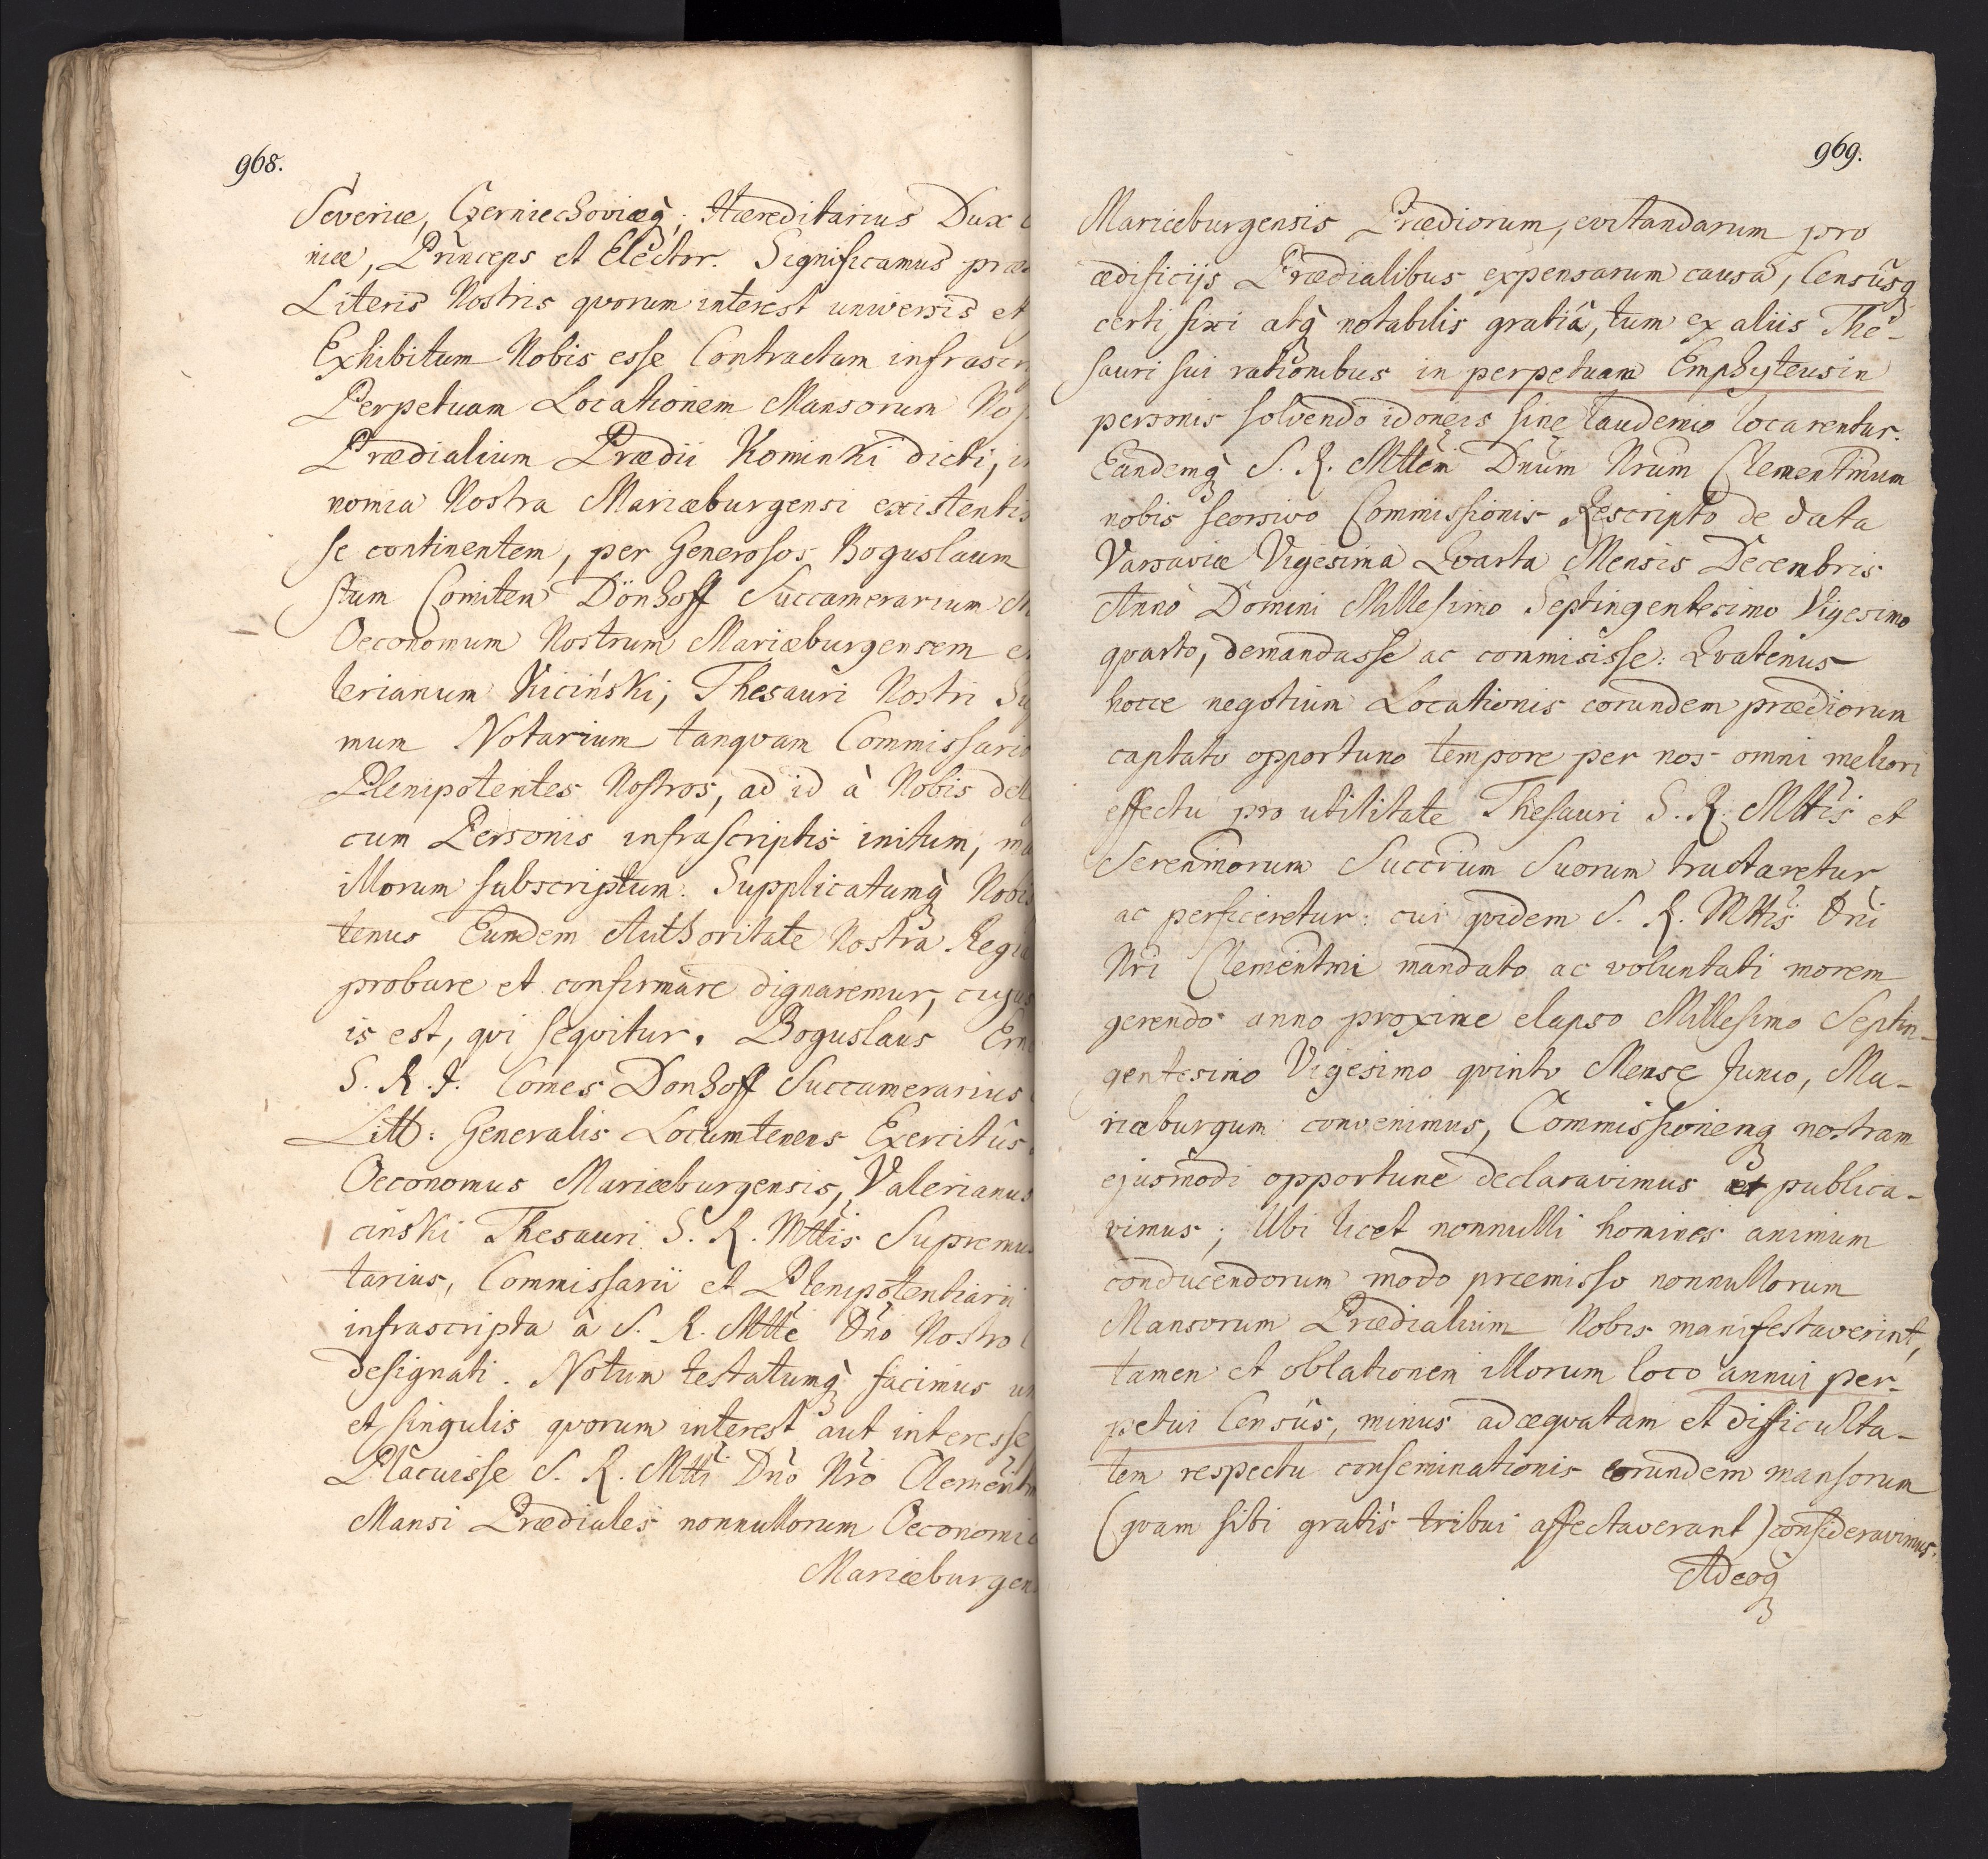 968.
Severiæ, Czerniechoviæq; Hæreditarius Dux
niæ, Princeps et Elector. Significamus præ
Literis Nostris qvorum interest universis et
Exhibitum Nobis esse Contractum infrascr
Perpetuam Locationem Mansorum No
Prædialium Prædii Kominki dicti, i
nomia Nostra Mariæburgensi existentis
se continentem, per Generosos Boguslaum
stum Comitem Dönhoff Succamerarium M
Oeconomum Nostrum Mariæburgensem e
lerianum Kiciński, Thesauri Nostri Su
mum Notarium tanqvam Commissario
Plenipotentes Nostros, ad id à Nobis del
cum Personis infrascriptis initum, ma
illorum subscriptum. Supplicatumq̀ Nobis
tenus Eundem Authoritate Nostra Regia
probare et confirmare dignaremur, cujus
is est, qvi seqvitur. Boguslaus Ern
S. R. I. Comes Donhoff Succamerarius
Litt: Generalis Locumtenens Exercitûs
Oeconomus Mariæburgensis, Valerianus
cinski Thesauri S. R. Mttis Supremus
tarius, Commissarii et Plenipotentiarii
infrascripta à S. R. Mtte Dño Nostro C
designati. Notum testatumq̀ facimus un
et singulis qvorum interest aut interesse
Placuisse S. R. Mtti Dño Nrõ Clementm
Mansi Prædiales nonnullorum Oeconomiæ
Mariæburgens
969.
Mariæburgensis Prædiorum, evitandarum pro
ædificijs Prædialibus expensarum causa, Censûsq
certi fixi atq̀ notabilis gratiâ, tum ex aliis The-
sauri sui rationibus in perpetuam Emphyteusin
personis solvendo idoneis sine laudemio locarentur.
Eandemq̀ S. R. Mttem Dnum Nrum Clementmum
nobis seorsivo Commissionis Rescripto de data
Varsaviæ Vigesima Qvarta Mensis Decembris
Anno Domini Millesimo Septingentesimo Vigesimo
qvarto, demandasse ac commisisse: Qvatenus
hocce negotium Locationis eorundem prædiorum
captato opportuno tempore per nos omni meliori
effectu pro utilitate Thesauri S. R. Mttis et
Serenmorum Succrum Suorum tractaretur
ac perficeretur: cui qvidem S. R. Mttis Dni
Nri Clementmi mandato ac voluntati morem
gerendo anno proxime elapso Millesimo Septin-
gentesimo Vigesimo qvinto Mense Junio, Ma-
riæburgum convenimus, Commissionemq nostram
ejusmodi opportune declaravimus et publica-
vimus; Ubi licet nonnulli homines animum
conducendorum modo præmisso nonnullorum
Mansorum Prædialium Nobis manifestaverint,
tamen et oblationem illorum loco annui per-
petui Censûs, minus adæqvatam et difficulta-
tem respectu conseminationis eorundem mansorum
(qvam sibi gratis tribui affectaverant) consideravimus.
Adeoq̀